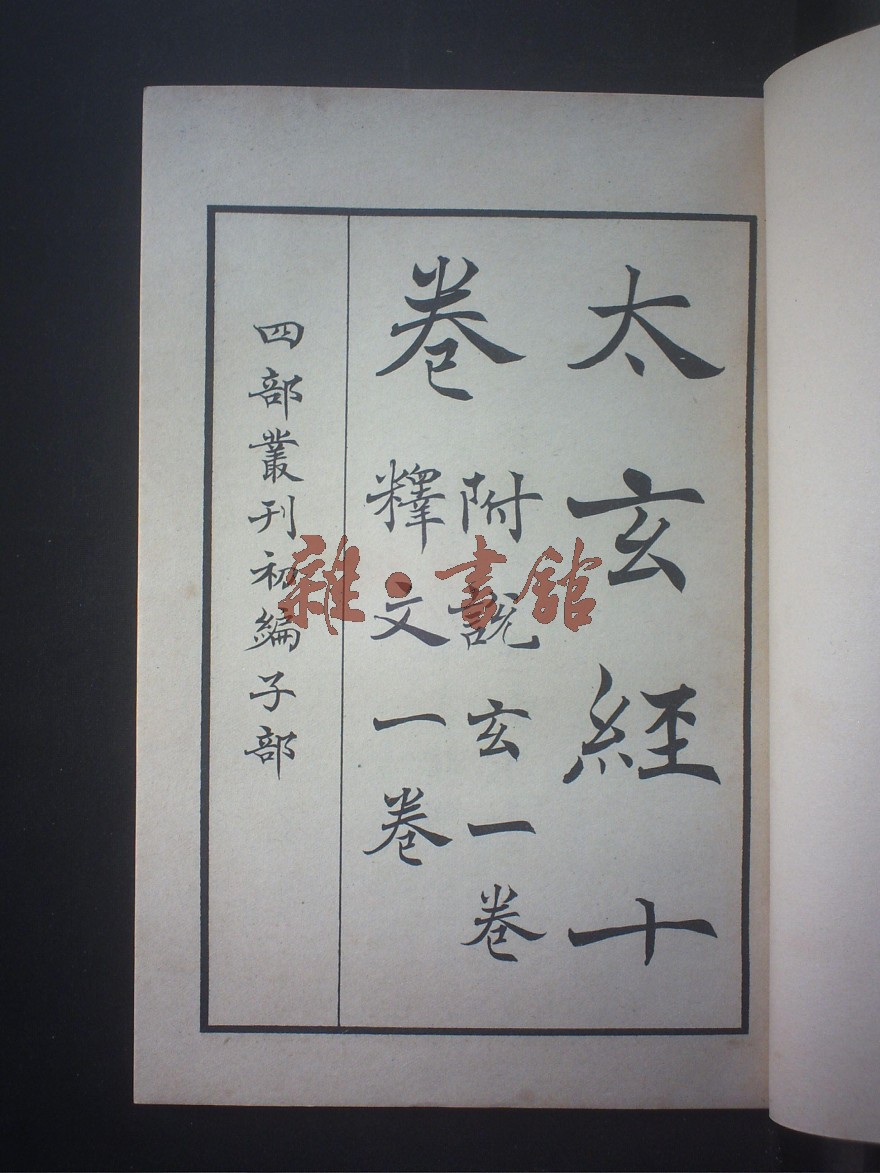 太玄經十
卷
附說玄一卷
釋文一卷
四部叢刊初編子部
雜·書館